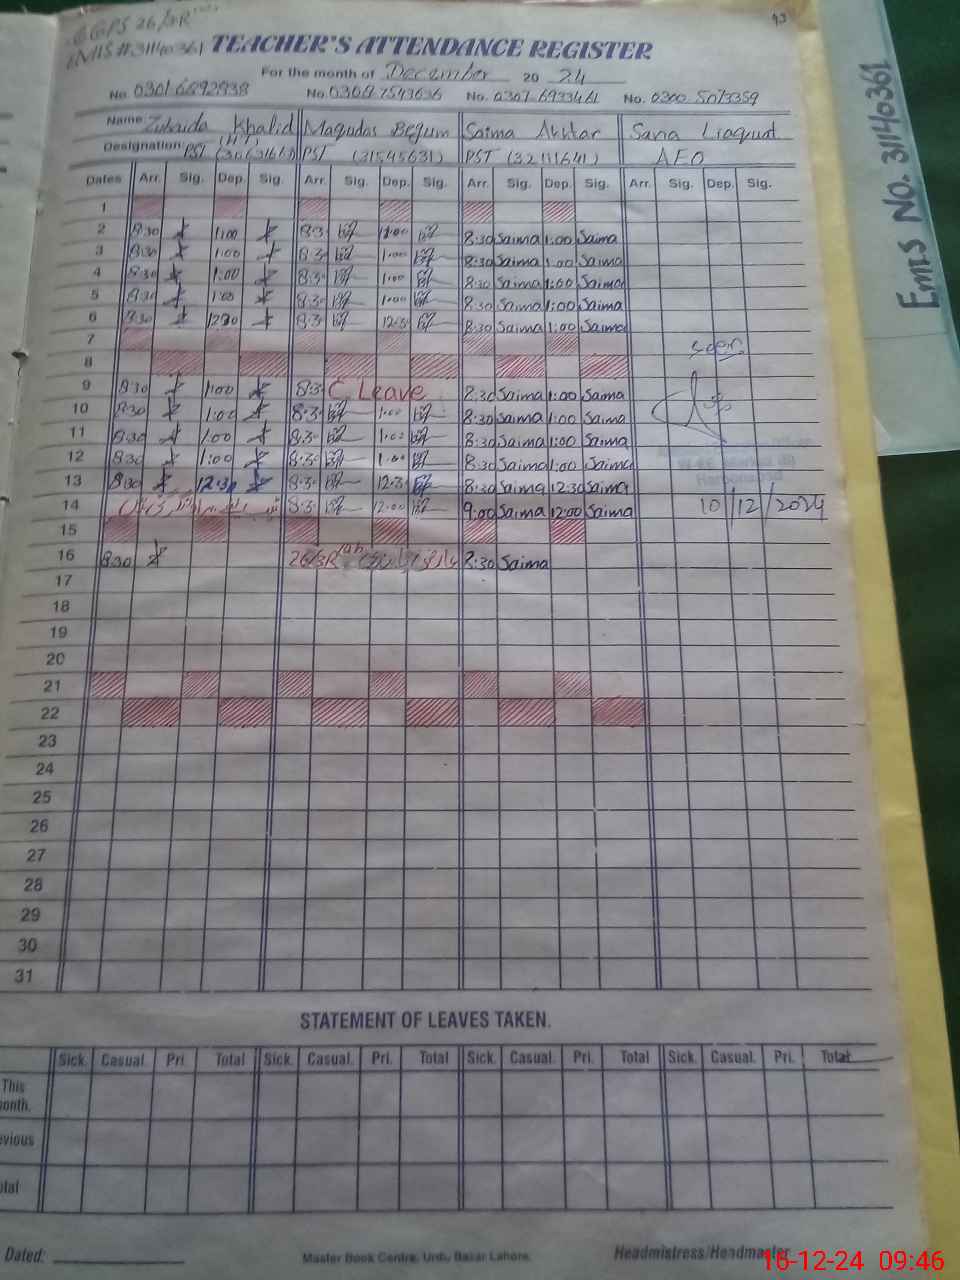 GGPS 26/3R
EMIS #31140361
93
TEACHER'S ATTENDANCE REGISTER
For the month of December 20 24
No. 0301 6892938 No. 0306 7543636 No. 0307-6933461 No. 0300 5073359
Name Zubaida Khalid Maqudas Begum Saima Akhtar Sana Liaquat
Designation PST PST (31545631) PST (32111641) AEO
Dates Arr. Sig. Dep. Sig. Arr. Sig. Dep. Sig. Arr. Sig. Dep. Sig. Arr. Sig. Dep. Sig.
1
2 8:30 1:00 8:30 1:00 8:30 Saima 1:00 Saima
3 8:30 1:00 8:30 1:00 8:30 Saima 1:00 Saima
4 8:30 1:00 8:30 1:00 8:30 Saima 1:00 Saima
5 8:30 1:00 8:30 1:00 8:30 Saima 1:00 Saima
6 8:30 12:30 8:30 12:30 8:30 Saima 1:00 Saima
7 seen
8
9 8:30 1:00 8:30 C. Leave 8:30 Saima 1:00 Saima
10 8:30 1:00 8:30 1:00 8:30 Saima 1:00 Saima
11 8:30 1:00 8:30 1:00 8:30 Saima 1:00 Saima
12 8:30 1:00 8:30 1:00 8:30 Saima 1:00 Saima
13 8:30 12:30 8:30 12:30 8:30 Saima 12:30 Saima
14 8:30 12:00 9:00 Saima 12:00 Saima 10/12/2024
15
16 8:30 26/3R 8:30 Saima
17
18
19
20
21
22
23
24
25
26
27
28
29
30
31
STATEMENT OF LEAVES TAKEN.
Sick. Casual. Pri. Total Sick. Casual. Pri. Total Sick. Casual. Pri. Total Sick. Casual. Pri. Total
This
onth.
evious
otal
Dated: Master Book Centre, Urdu Bazar Lahore. Headmistress/Headmaster
Emis No. 31140361
16-12-24 09:46